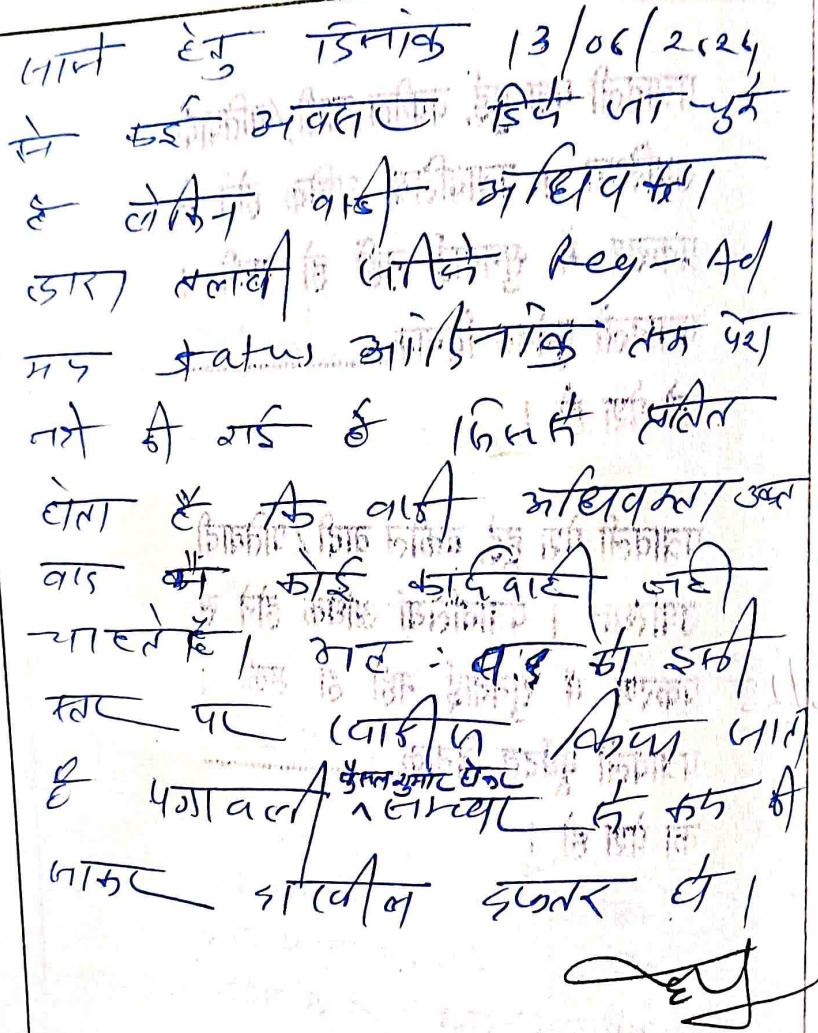 लाने हेतु दिनांक 13/06/2024
से कई अवसर दिये जा चुके
है लेकिन वादी अधिवक्ता
द्वारा तलबी जरिये Reg-Ad
मय status आदिनांक तक पेश
नही की गई है जिससे प्रतित
होता है कि वादी अधिवक्ता उक्त
वाद मे कोई कार्यवाही नही
चाहते है। अतः वाद को इसी
स्तर पर खारीज किया जाता
है पत्रावली फैसल शुमार होकर नम्बर से कम की
जाकर दाखील दफ्तर हो।